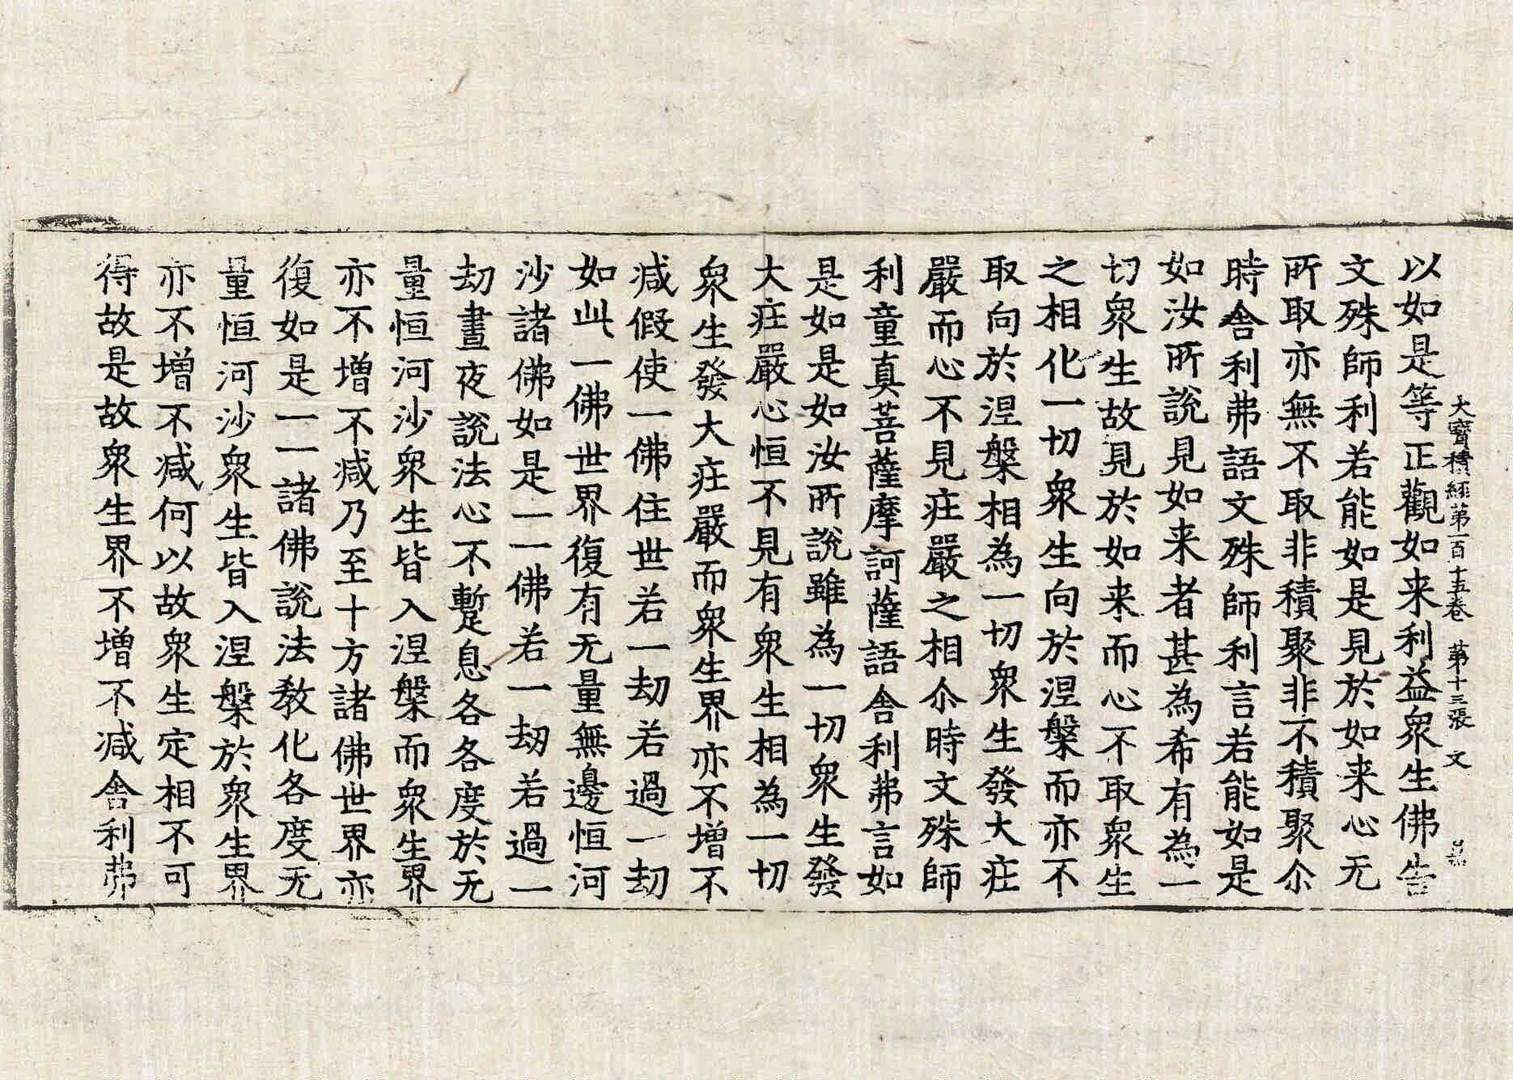 大寶積經第一百十五卷 第十三張 文
以如是等正觀如来利益衆生佛告
文殊師利若能如是見於如来心无
所取亦無不取非積聚非不積聚尒
時舍利弗語文殊師利言若能如是
如汝所說見如来者甚為希有為一
切衆生故見於如来而心不取衆生
之相化一切衆生向於涅槃而亦不
取向於涅槃相為一切衆生發大疘
嚴而心不見疘嚴之相尒時文殊師
利童真菩薩摩訶薩語舍利弗言如
是如是如汝所說雖為一切衆生發
大疘嚴心恒不見有衆生相為一切
衆生發大疘嚴而衆生界亦不增不
减假使一佛住世若一劫若過一劫
如此一佛世界復有无量無邊恒河
沙諸佛如是一一佛若一劫若過一
劫晝夜說法心不蹔息各各度於无
量恒河沙衆生皆入涅槃而衆生界
亦不增不减乃至十方諸佛世界亦
復如是一一諸佛說法教化各度无
量恒河沙衆生皆入涅槃於衆生界
亦不增不减何以故衆生定相不可
得故是故衆生界不增不减舍利弗